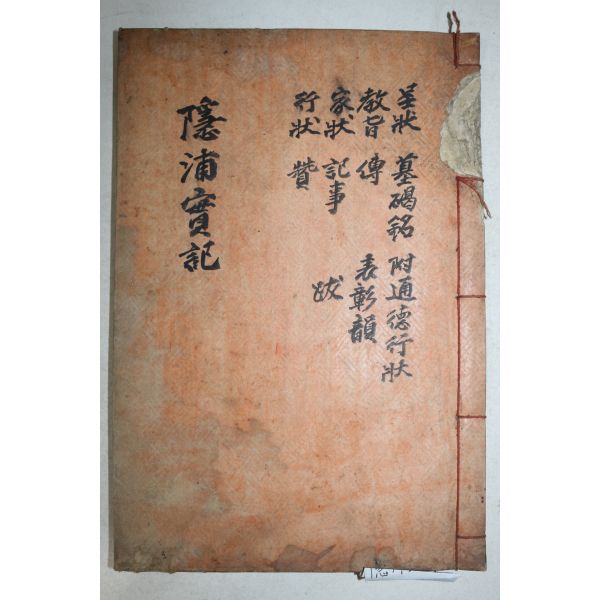 呈狀 墓碣銘 附通德行狀
教旨 傳 表彰韻
家狀 記事 跋
行狀 贊
隱浦實記